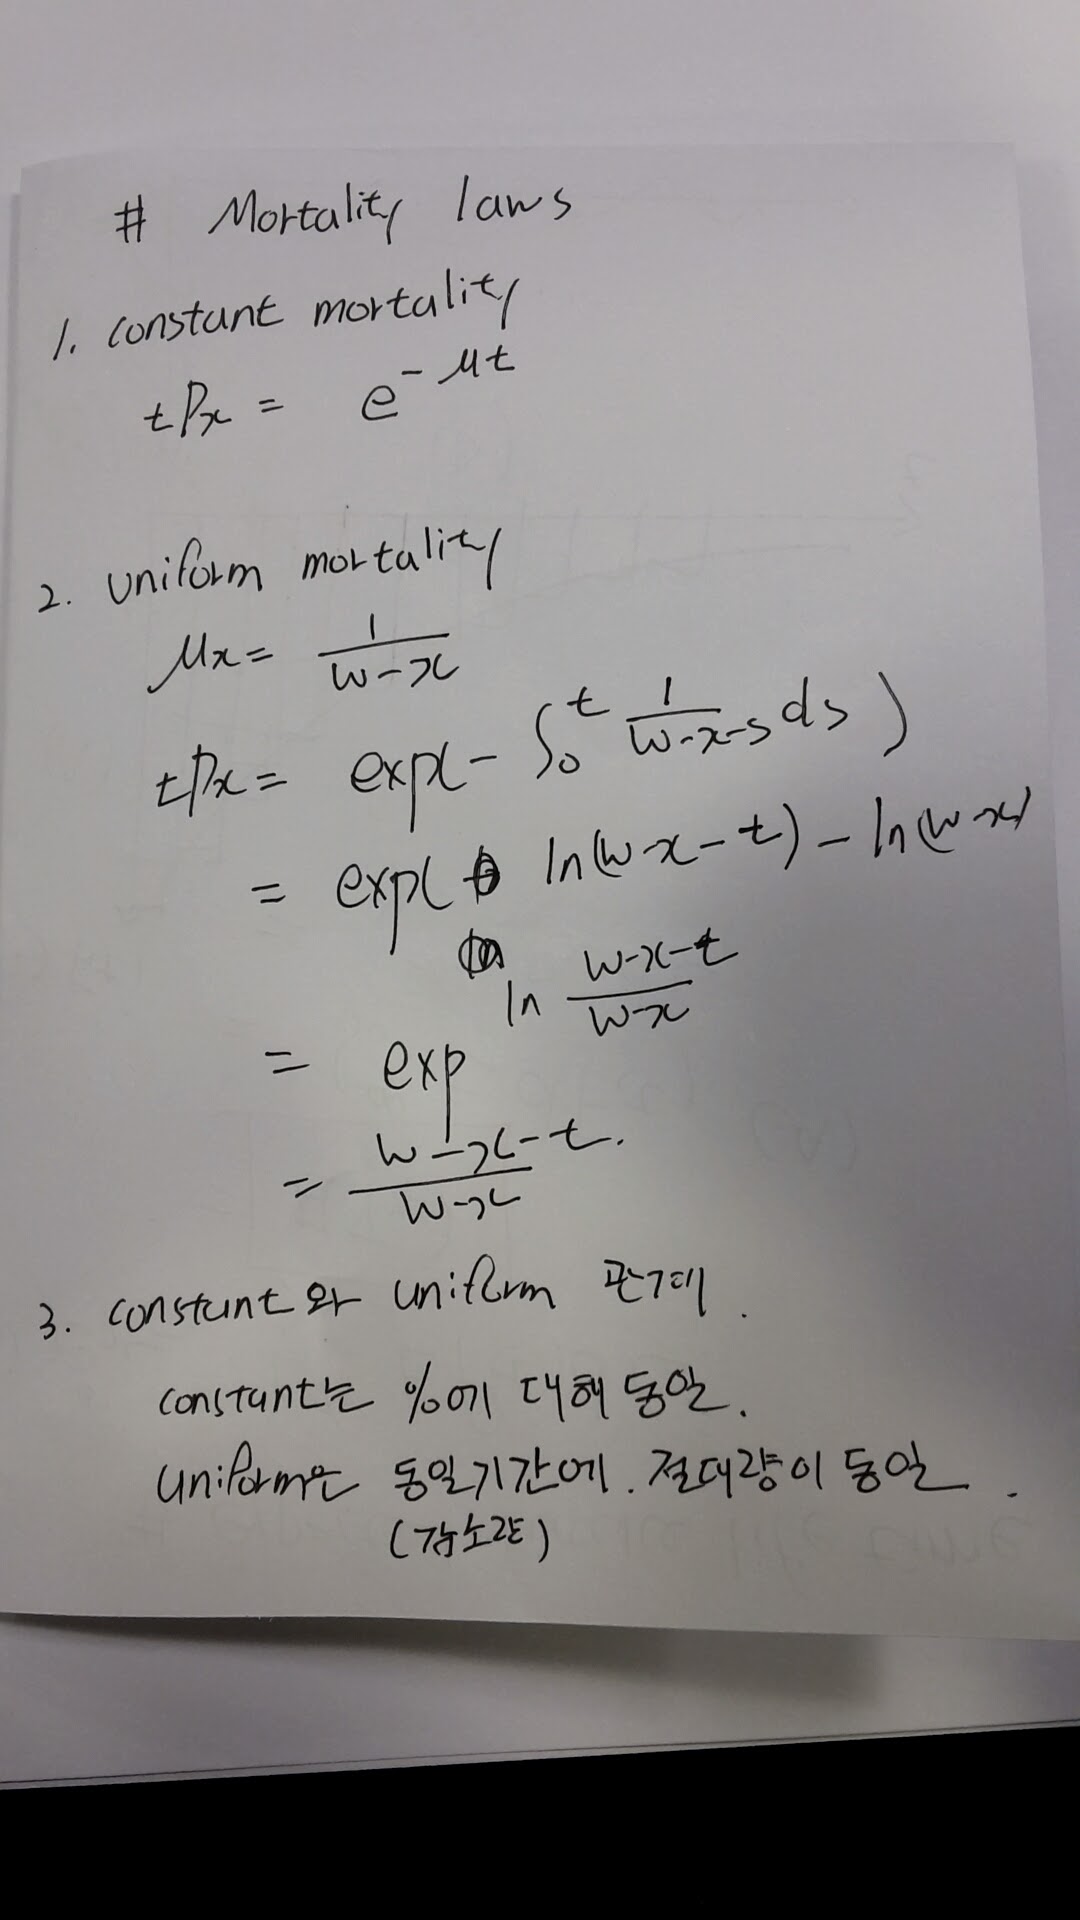 # Mortality laws
1. constant mortality
tPx = e^-μt
2. uniform mortality
μx = 1/(w-x)
tPx = exp(- ∫₀^t 1/(w-x-s) ds)
= exp( ln(w-x-t) - ln(w-x)
= exp ln (w-x-t)/(w-x)
= (w-x-t)/(w-x).
3. constant와 uniform 관계.
constant는 %에 대해 동일.
uniform은 동일기간에. 절대량이 동일.
(감소량)